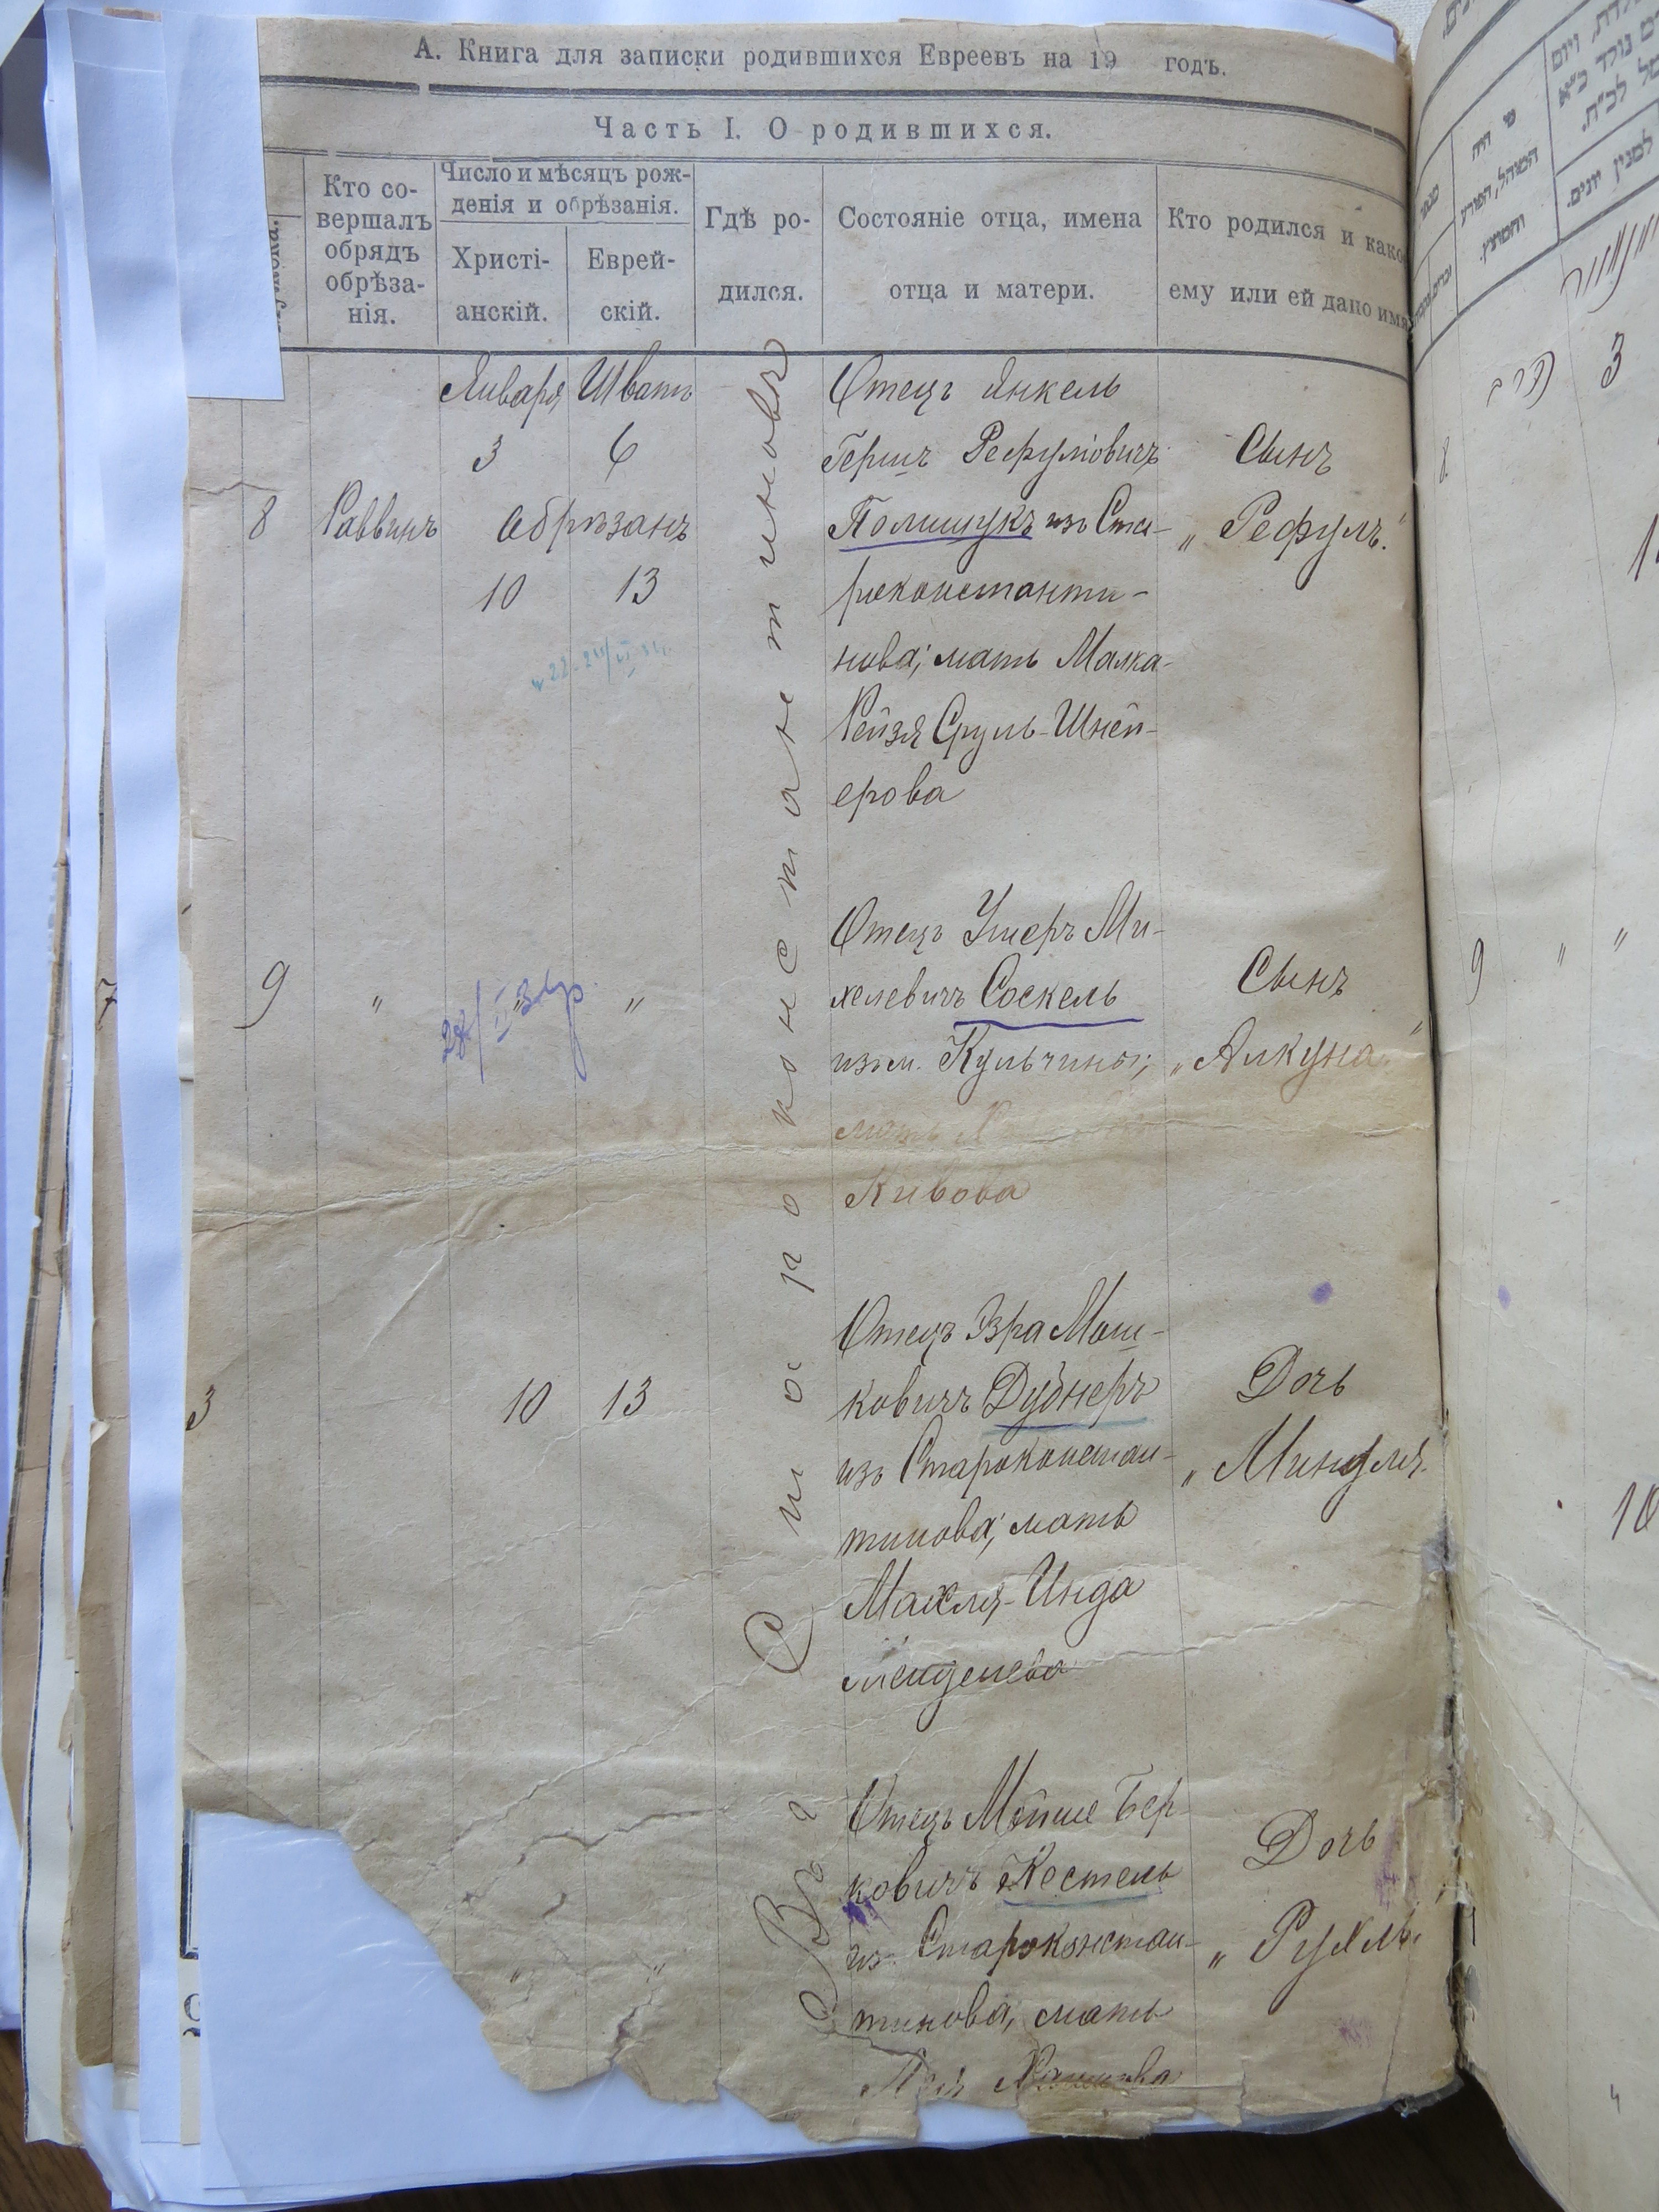 А. Книга для записки родившихся Евреевъ на 19 годъ.
Часть I. О родившихся.
Кто со-
вершалъ
обрядъ
обрѣза-
нія.
Число и мѣсяцъ рож-
денія и обрѣзанія.
Христі-
анскій.
Еврей-
скій.
Гдѣ ро-
дился.
Состояніе отца, имена
отца и матери.
Кто родился и како
ему или ей дано имя
Въ г. Староконстантиновѣ
8
Раввинъ
Января Шватъ
3 6
обрѣзанъ
10 13
Отецъ Янкель
Гершъ Рефуловичъ
Полищукъ изъ Ста-
роконстанти-
нова; мать Малка-
Рейзя Сруль-Шней-
ерова
Сынъ
„Рефулъ."
9
" " "
Отецъ Ушеръ Ми-
хелевичъ Соскель
изъ м. Кульчины;
мать
Кивова
Сынъ
„Алкуна"
3
10 13
Отецъ Эзра Мош-
ковичъ Дубнеръ
изъ Староконстан-
тинова; мать
Махля-Инда
Менделева
Дочь
„Миндля.
" "
Отецъ Мойше Бер-
ковичъ Кестель
из Староконстан-
тинова, мать
Дочь
„Рухль.
למנין יונים.
מי היה
המוהל, הפורע
והמוצץ.
8
3
9 " "
10